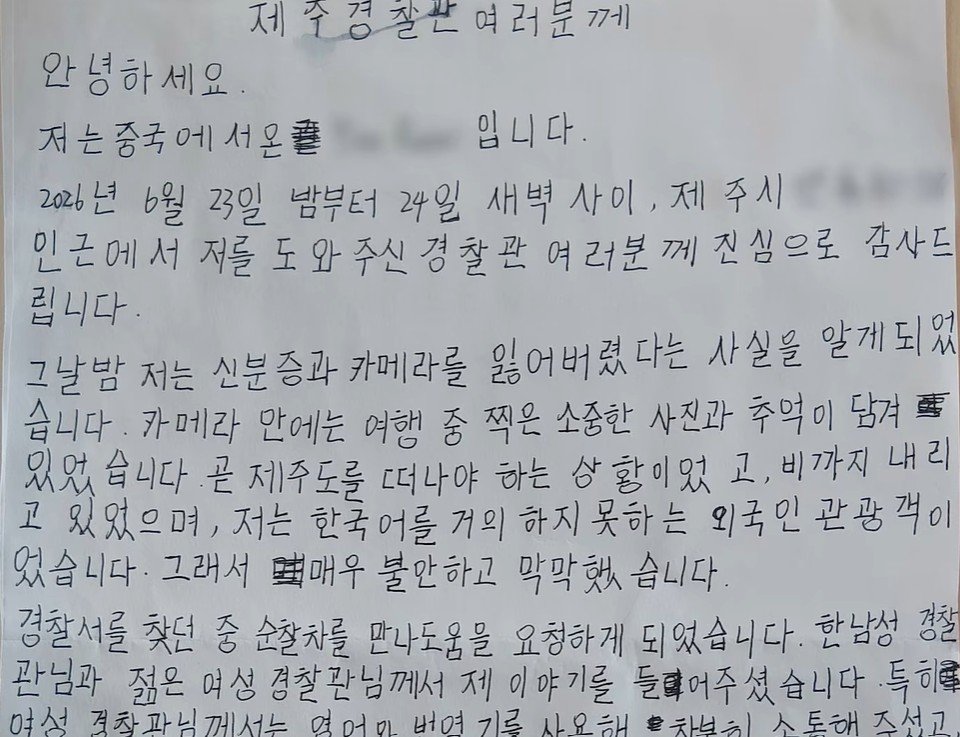 제주경찰관 여러분께
안녕하세요.
저는 중국에서 온 입니다.
2026년 6월 23일 밤부터 24일 새벽 사이, 제주시
인근에서 저를 도와주신 경찰관 여러분께 진심으로 감사드
립니다.
그날 밤 저는 신분증과 카메라를 잃어버렸다는 사실을 알게 되었
습니다. 카메라 안에는 여행 중 찍은 소중한 사진과 추억이 담겨
있었습니다. 곧 제주도를 떠나야 하는 상황이었고, 비까지 내리
고 있었으며, 저는 한국어를 거의 하지 못하는 외국인 관광객이
었습니다. 그래서 매우 불안하고 막막했습니다.
경찰서를 찾던 중 순찰차를 만나 도움을 요청하게 되었습니다. 한 남성 경찰
관님과 젊은 여성 경찰관님께서 제 이야기를 들어주셨습니다. 특히
여성 경찰관님께서는 영어와 번역기를 사용해 차분히 소통해 주셨고,